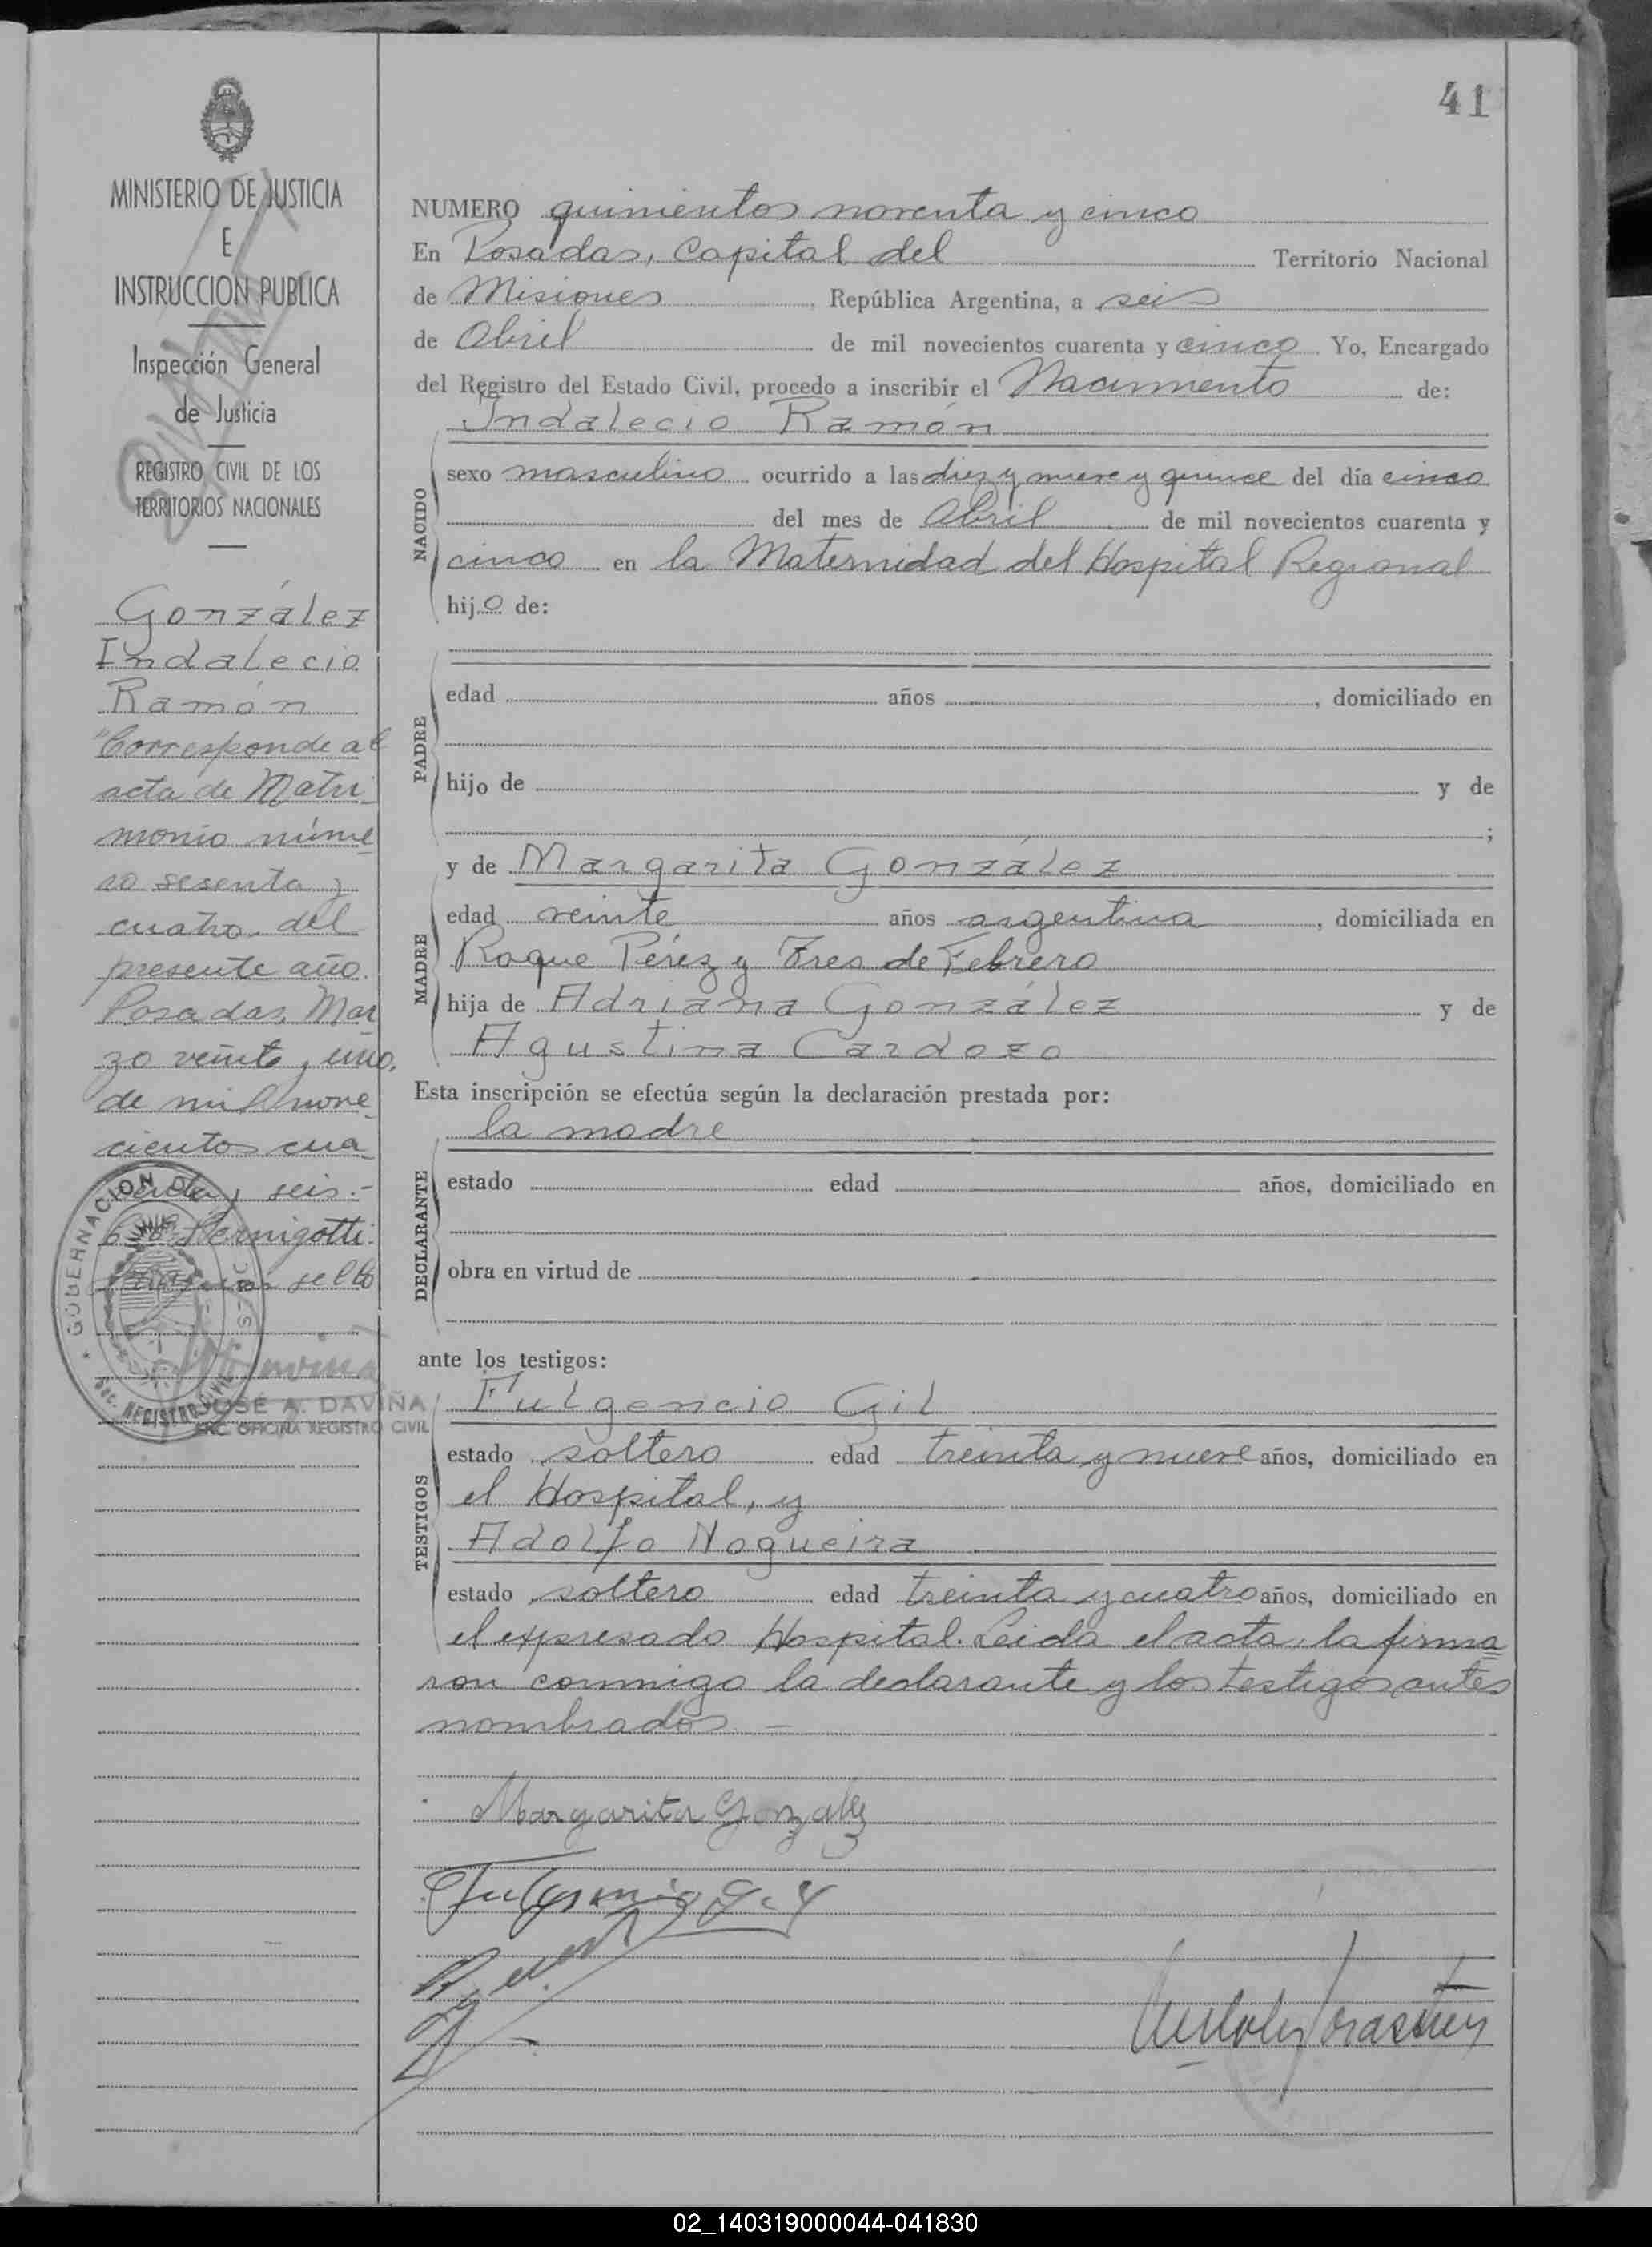 41
MINISTERIO DE JUSTICIA
E
INSTRUCCION PUBLICA
Inspección General
de Justicia
REGISTRO CIVIL DE LOS
TERRITORIOS NACIONALES
González
Indalecio
Ramón
"Corresponde al
acta de Matri-
monio núme-
ro sesenta y
cuatro del
presente año.
Posadas, Mar-
zo veinte y uno,
de mil nove-
cientos cua-
renta y seis.-
Pernigotti.
sello
GOBERNACION DE
REGISTRO CIVIL
JOSÉ A. DAVIÑA
ENC. OFICINA REGISTRO CIVIL
NUMERO quinientos noventa y cinco
En Posadas, Capital del Territorio Nacional
de Misiones República Argentina, a seis
de Abril de mil novecientos cuarenta y cinco Yo, Encargado
del Registro del Estado Civil, procedo a inscribir el Nacimiento de:
Indalecio Ramón
NACIDO
sexo masculino ocurrido a las diez y nueve y quince del día cinco
del mes de Abril de mil novecientos cuarenta y
cinco en la Maternidad del Hospital Regional
hijo de:
PADRE
edad años , domiciliado en
hijo de y de
;
y de Margarita González
MADRE
edad veinte años argentina , domiciliada en
Roque Pérez y Tres de Febrero
hija de Adriana González y de
Agustina Cardozo
Esta inscripción se efectúa según la declaración prestada por:
la madre
DECLARANTE
estado edad años, domiciliado en
obra en virtud de
ante los testigos:
Fulgencio Gil
TESTIGOS
estado soltero edad treinta y nueve años, domiciliado en
el Hospital, y
Adolfo Nogueira
estado soltero edad treinta y cuatro años, domiciliado en
el expresado Hospital. Leida el acta, la firma=
ron conmigo la declarante y los testigos antes
nombrados —
Margarita Gonzalez
Fulgencio Gil
02_140319000044-041830